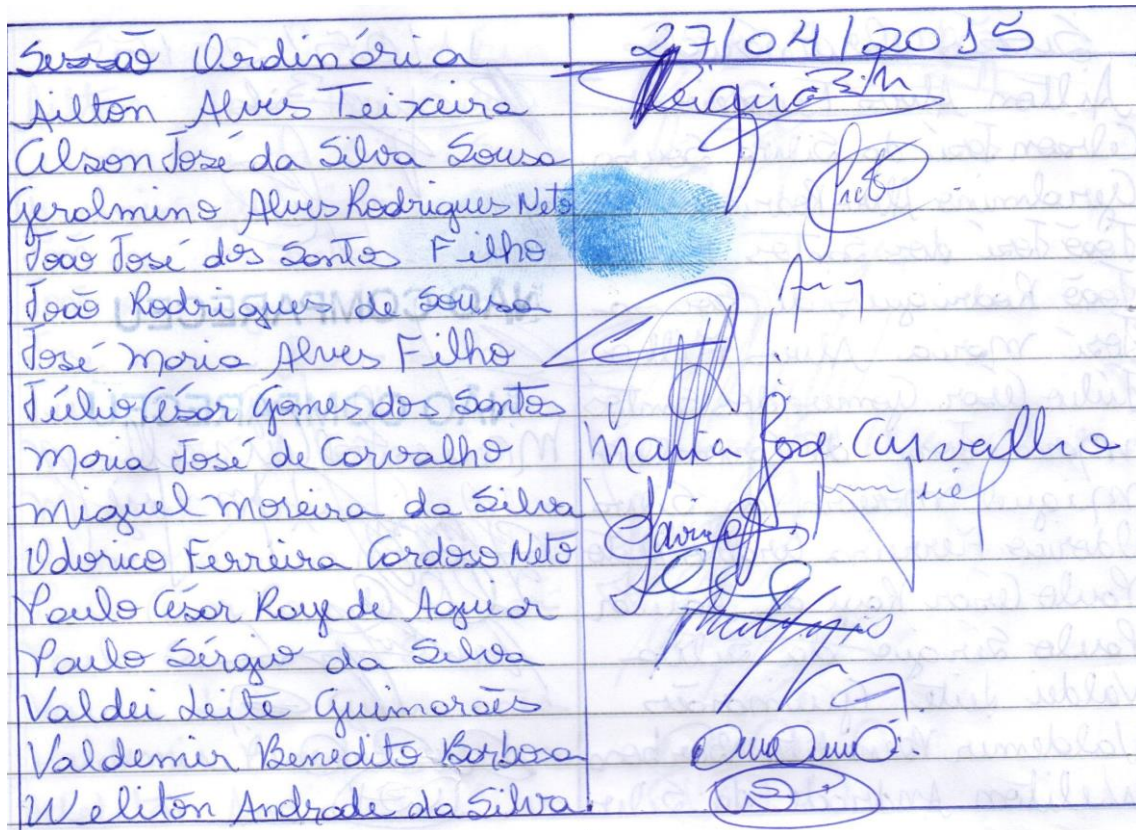 Sessão Ordinária 27/04/2015
Ailton Alves Teixeira
Celson José da Silva Sousa
Geralmino Alves Rodrigues Neto Neto
João José dos Santos Filho
João Rodrigues de Sousa
José Maria Alves Filho
Júlio César Gomes dos Santos
Maria José de Carvalho Maria José Carvalho
Miguel Moreira da Silva Miguel
Odorico Ferreira Cardoso Neto
Paulo César Raye de Aguiar
Paulo Sérgio da Silva
Valdei Leite Guimarães
Valdemir Benedito Barbosa
Weliton Andrade da Silva
NÃO COMPARECEU
NÃO COMPARECEU